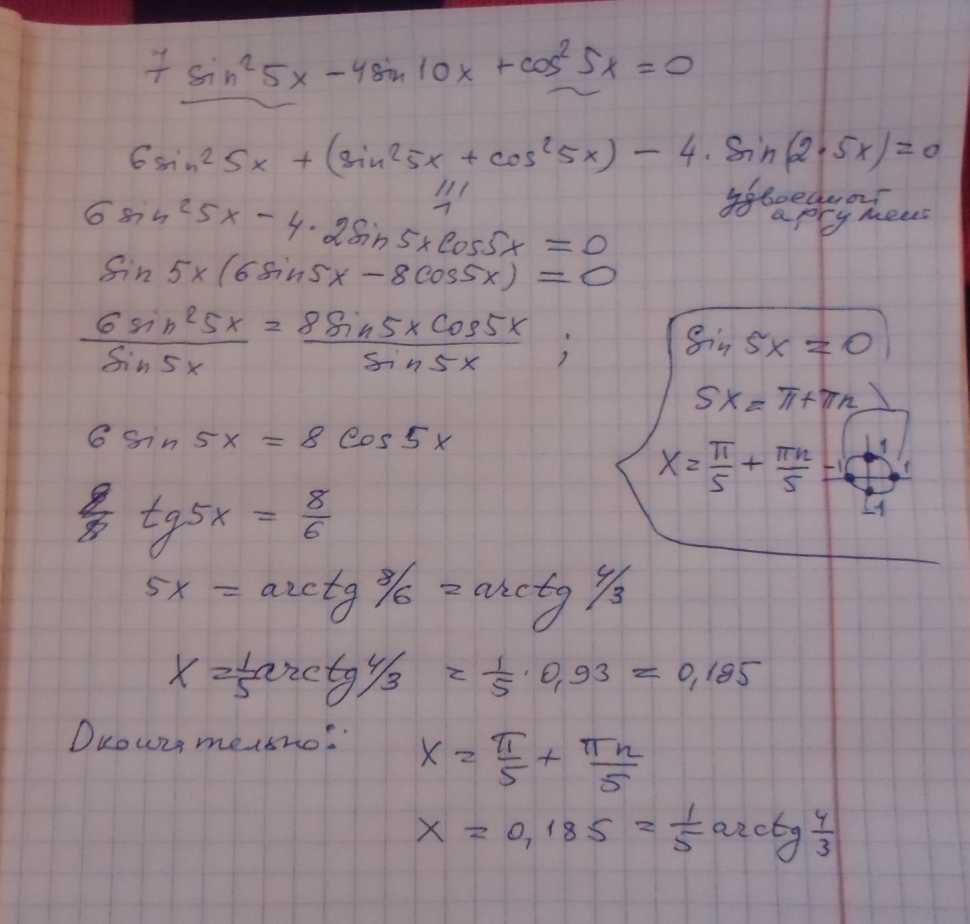 7 sin² 5x − 4sin 10x + cos² 5x = 0
6sin² 5x + (sin² 5x + cos² 5x) − 4 · Sin(2 · 5x) = 0
III
1
удвоенный
аргумент
6 sin² 5x − 4 · 2Sin 5x cos 5x = 0
Sin 5x (6 Sin 5x − 8 cos 5x) = 0
6 sin² 5x / Sin 5x = 8 Sin 5x Cos 5x / Sin 5x ;
Sin 5x = 0
5x = π + πn
x = π/5 + πn/5
1
-1 1
-1
6 Sin 5x = 8 cos 5x
tg 5x = 8/6
5x = arctg 8/6 = arctg 4/3
X = 1/5 arctg 4/3 = 1/5 · 0,93 = 0,185
Окончательно:
X = π/5 + πn/5
X = 0,185 = 1/5 arctg 4/3